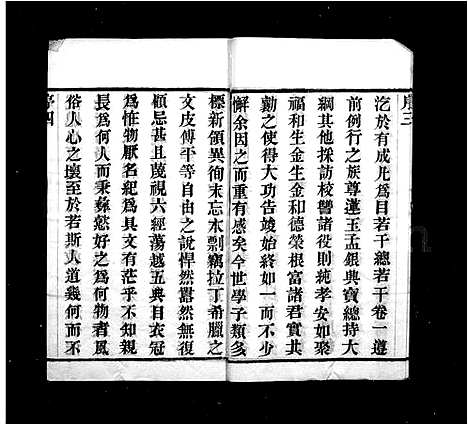 序三
迄於有成凡為目若干總若干卷一遵
前例行之族尊蓮玉孟銀典寶總持大
綱其他採訪校讐諸役則純孝安如聚
福和生金生金和德榮根富諸君實共
勷之使得大功告竣始終如一而不少
懈余因之而重有感矣今世學子類多
標新領異徇末忘本剽竊拉丁希臘之
文皮傅平等自由之說悍然囂然無復
顧忌甚且蔑視六經蕩越五典目衣冠
為怪物厭名紀為具文有茫乎不知親
長為何人而秉彝懿好之為何物者風
俗人心之壞至於若斯人道幾何而不
序四